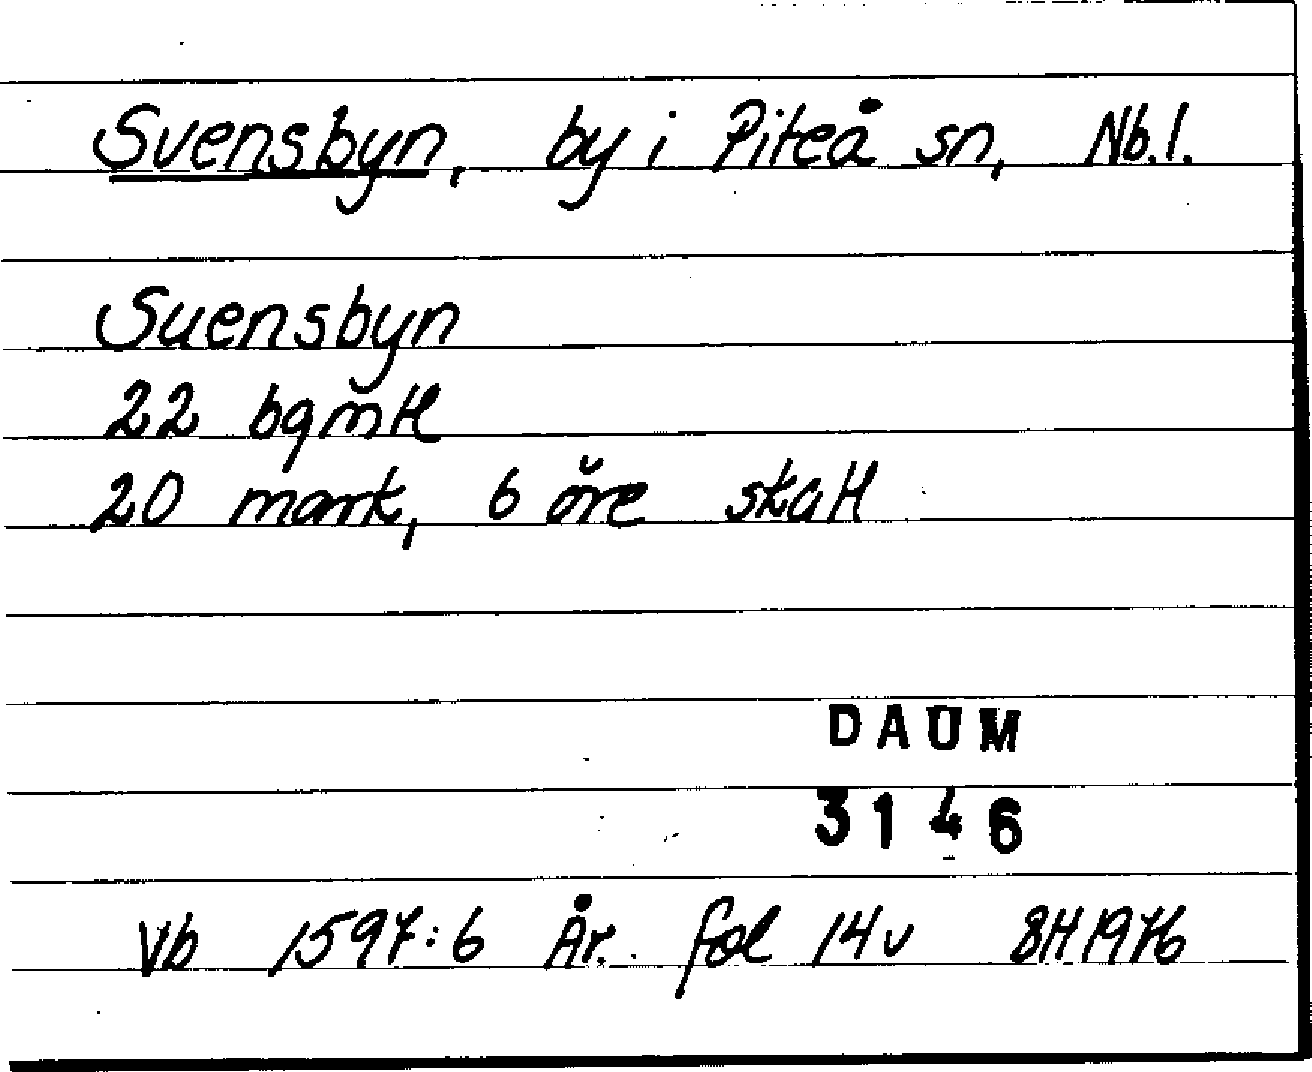 Svensbyn, by i Piteå sn, Nb.l.
Suensbyn
22 bgmtl
20 mark, 6 öre skatt
DAUM
3146
Vb 1597:6 År. fol 14v BH1976